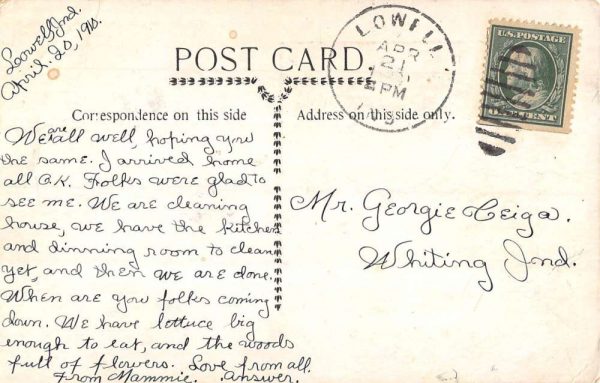 Lowell, Ind.
April. 20, 1910.
POST CARD.
LOWELL
APR
21
PM
U.S. POSTAGE
Correspondence on this side
Address on this side only.
We are all well, hoping you
the same. I arrived home
all O.K. Folks were glad to
see me. We are cleaning
house, we have the kitchen
and dinning room to clean
yet, and then we are done.
When are you folks coming
down. We have lettuce big
enough to eat, and the woods
full of flowers. Love from all.
From Mammie. Answer.
Mr. Georgie Ceiga.
Whiting Ind.